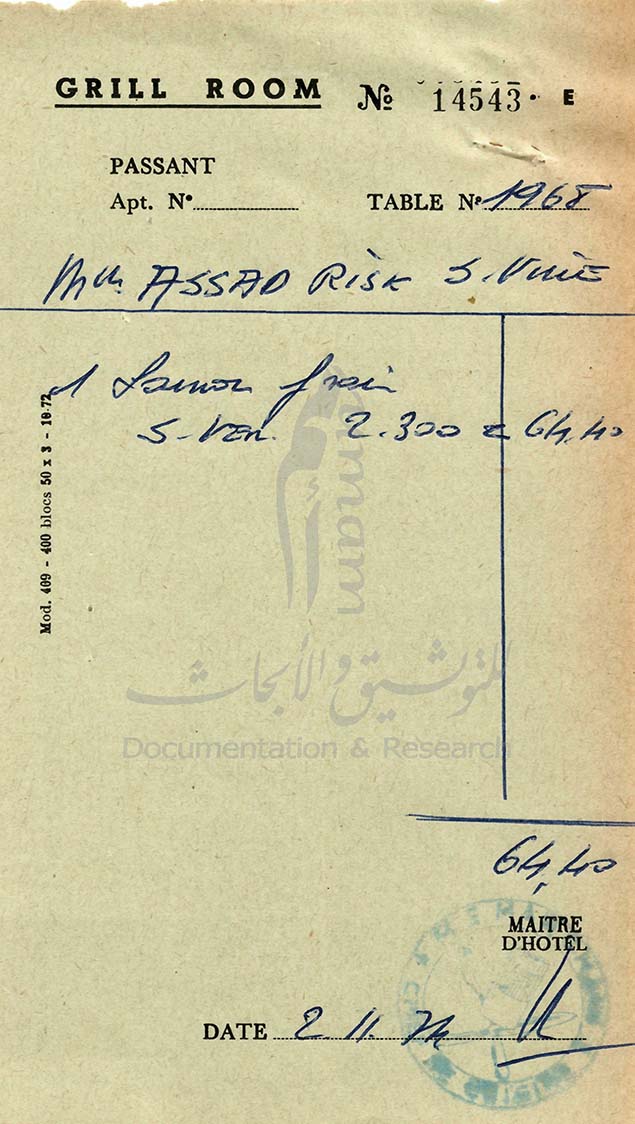 GRILL ROOM № 14543 · E
PASSANT
Apt. N° TABLE N° 1968
ASSAD RISK S.
1
S. VEN. 2.300 = 64,40
Mod. 409 - 400 blocs 50 x 3 - 10-72
أمم
umam
للتوثيق والأبحاث
Documentation & Research
64,40
MAITRE
D'HOTEL
DATE 2 11. 74